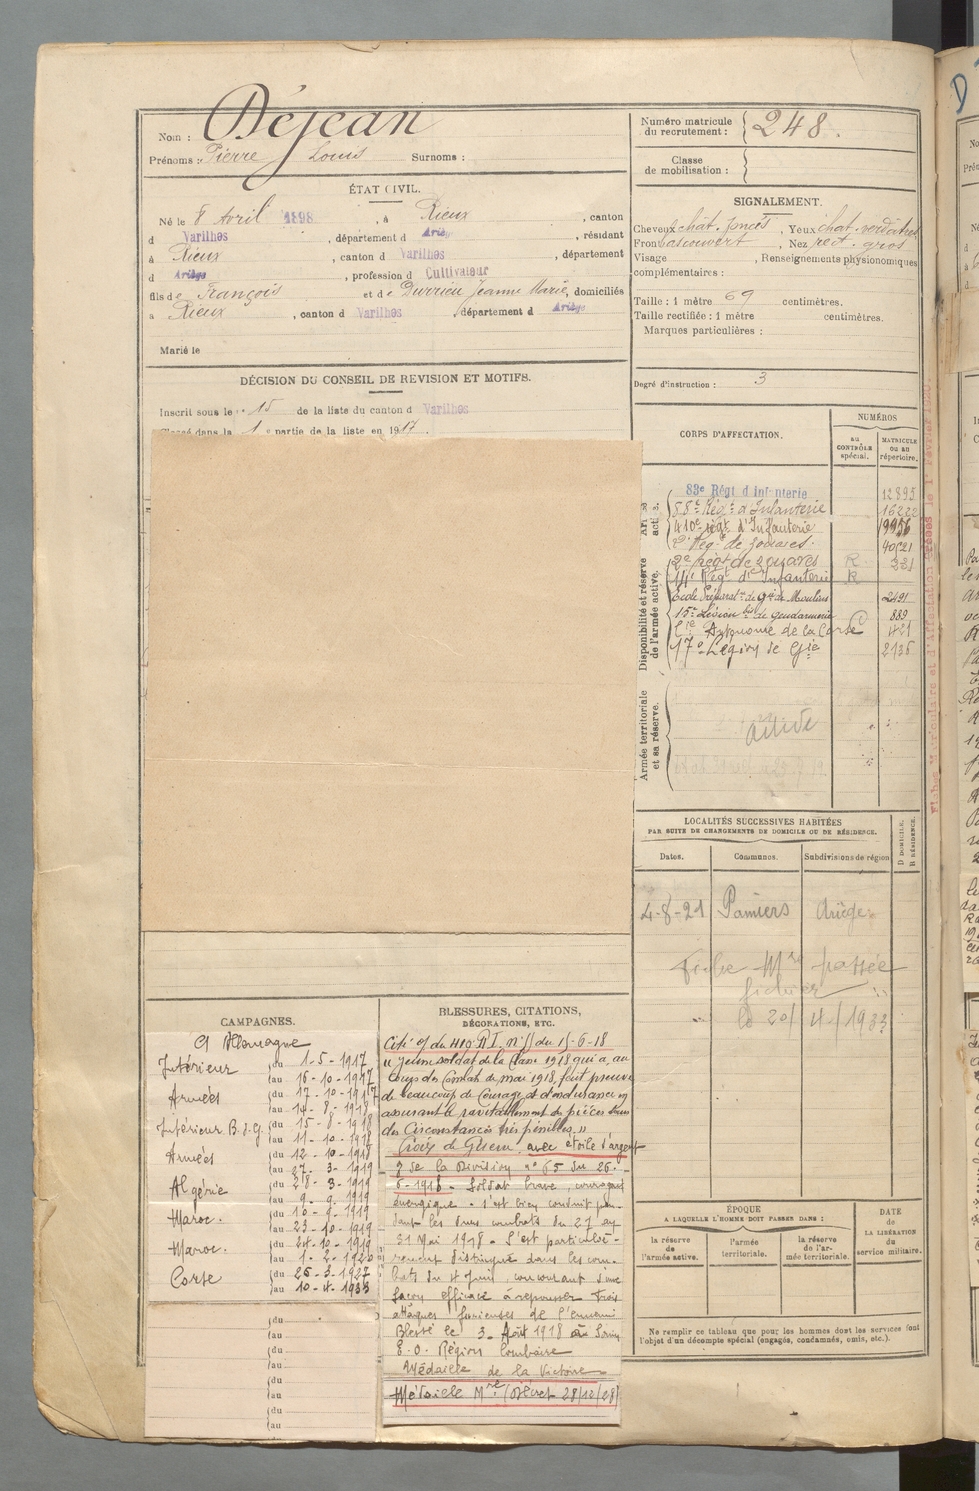 Nom : Déjean
Prénoms : Pierre Louis Surnoms :
Numéro matricule du recrutement : 248.
Classe de mobilisation :
ÉTAT CIVIL.
Né le 8 Avril 1898, à Rieux, canton
d Varilhes, département d Ariège, résidant
à Rieux, canton d Varilhes, département
d Ariège, profession d Cultivateur
fils de François et de Durrieu Jeanne Marie, domiciliés
à Rieux, canton d Varilhes, département d Ariège
Marié le
SIGNALEMENT.
Cheveux chât. foncés, Yeux chat. verdâtres
Front bas couvert, Nez rect. gros
Visage , Renseignements physionomiques
complémentaires :
Taille : 1 mètre 69 centimètres.
Taille rectifiée : 1 mètre centimètres.
Marques particulières :
Degré d'instruction : 3
DÉCISION DU CONSEIL DE REVISION ET MOTIFS.
Inscrit sous le n° 15 de la liste du canton d Varilhes
Classé dans la 1e partie de la liste en 1917.
CORPS D'AFFECTATION.
NUMÉROS
au CONTRÔLE spécial.
MATRICULE ou au répertoire.
83e Régt d'Infanterie 12895
88e Régt d'Infanterie 16222
410e régt d'Infanterie 19956
2e Régt de zouares. 40521
Disponibilité et réserve de l'armée active.
2e régt de zouaves R 331
14e Régt d'Infanterie R
Ecole Préparat. de Gie de Moulins 2491
15e Légion bis de Gendarmerie 889
Cie Autonome de la Corse 421
17e Légion de Gie 2136
Armée territoriale et sa réserve.
active
Fiches Matriculaire et d'Affectation créées le 1er Février 1920.
LOCALITÉS SUCCESSIVES HABITÉES
PAR SUITE DE CHANGEMENTS DE DOMICILE OU DE RÉSIDENCE.
Dates. Communes. Subdivisions de région
D DOMICILE. R RÉSIDENCE.
4-8-21 Pamiers Ariège
Fiche Mre passée
fichier
le 20/4/1933
CAMPAGNES.
C. Allemagne
Intérieur du 1-5-1917
au 16-10-1917
Armées du 17-10-1917
au 14-8-1918
Intérieur B. d. G. du 15-8-1918
au 11-10-1918
Armées du 12-10-1918
au 27-3-1919
Algérie du 28-3-1919
au 9-9-1919
Maroc. du 10-9-1919
au 23-10-1919
Maroc. du 24-10-1919
au 1-2-1920
Corse du 26-3-1927
au 10-4-1933
du
au
du
au
du
au
du
au
BLESSURES, CITATIONS,
DÉCORATIONS, ETC.
Cité o/ du 410 R.I. du 15-6-18
"Jeune soldat de la Classe 1918 qui a, au
Cours des Combats de mai 1918, fait preuve
de beaucoup de Courage et d'endurance en
assurant le ravitaillement en pièces dans
des Circonstances très pénibles."
Croix de Guerre avec étoile d'argent
o/ de la Division n° 65 du 26-
6-1918 - Soldat brave, courageux
énergique - s'est bien conduit pen-
dant les durs combats du 27 au
31 Mai 1918 - S'est particuliè-
rement distingué dans les com-
bats du 4 Juin, concourant d'une
façon efficace à repousser trois
attaques furieuses de l'ennemi
Blessé le 3 Août 1918
E.O. Région lombaire
Médaille de la Victoire
Médaille Mre (Décret 28/12/28)
ÉPOQUE
A LAQUELLE L'HOMME DOIT PASSER DANS :
la réserve de l'armée active.
l'armée territoriale.
la réserve de l'armée territoriale.
DATE de LA LIBÉRATION du service militaire.
Ne remplir ce tableau que pour les hommes dont les services font
l'objet d'un décompte spécial (engagés, condamnés, omis, etc.).